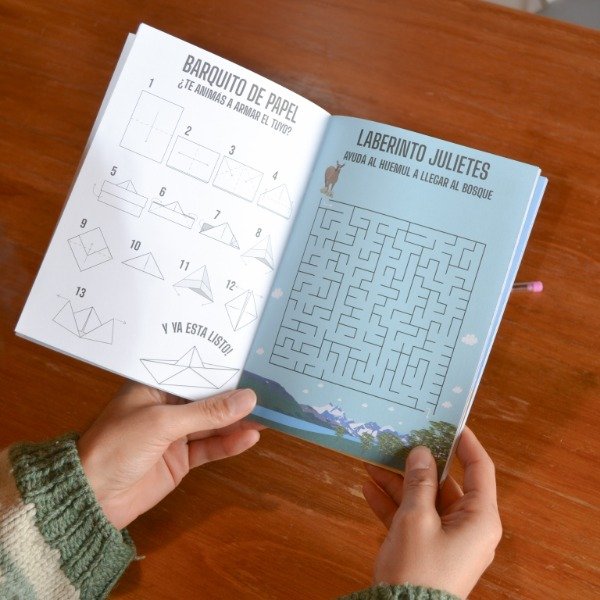 BARQUITO DE PAPEL
¿TE ANIMÁS A ARMAR EL TUYO?
1
2
3
4
5
6
7
8
9
10
11
12
13
Y YA ESTA LISTO!
LABERINTO JULIETES
AYUDÁ AL HUEMUL A LLEGAR AL BOSQUE